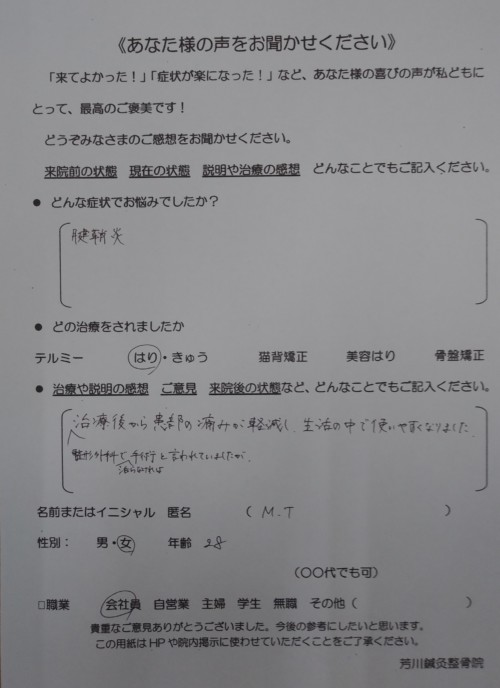 《あなた様の声をお聞かせください》
「来てよかった！」「症状が楽になった！」など、あなた様の喜びの声が私どもに
とって、最高のご褒美です！
どうぞみなさまのご感想をお聞かせください。
来院前の状態　現在の状態　説明や治療の感想　どんなことでもご記入ください。
● どんな症状でお悩みでしたか？
腱鞘炎
● どの治療をされましたか
テルミー　はり・きゅう　猫背矯正　美容はり　骨盤矯正
● 治療や説明の感想　ご意見　来院後の状態など、どんなことでもご記入ください。
治療後から患部の痛みが軽減し、生活の中で使いやすくなりました。
整形外科で手術と言われていましたが、
治らなければ
名前またはイニシャル　匿名　（ M.T ）
性別：　男・女　年齢 28
（〇〇代でも可）
□職業　会社員　自営業　主婦　学生　無職　その他（　）
貴重なご意見ありがとうございました。今後の参考にしたいと思います。
この用紙はHPや院内掲示に使わせていただくことをご了承ください。
芳川鍼灸整骨院